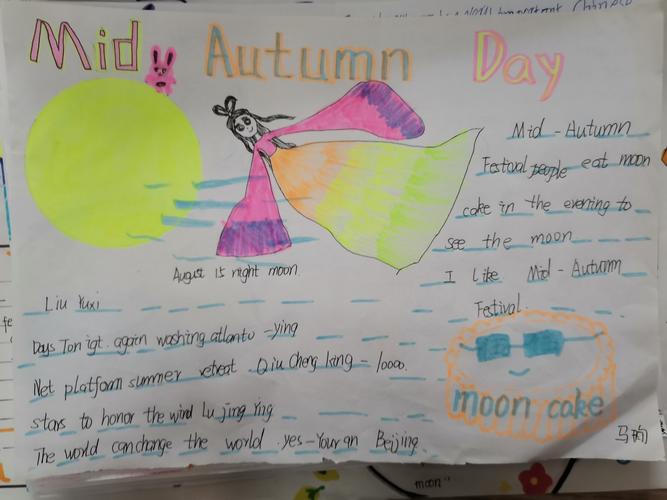 Mid Autumn Day
Mid - Autumn
Festival people eat moon
cake in the evening to
see the moon
I like Mid - Autumn
Festival
August 15 night moon
Liu Yuxi
Days Ton igt. again washing atlanto -ying
Net platform summer retreat Qiu Cheng king - 10000.
stars to honor the wind Lu jing Ying
The world can change the world yes - Your an Beijing
moon cake
moon"